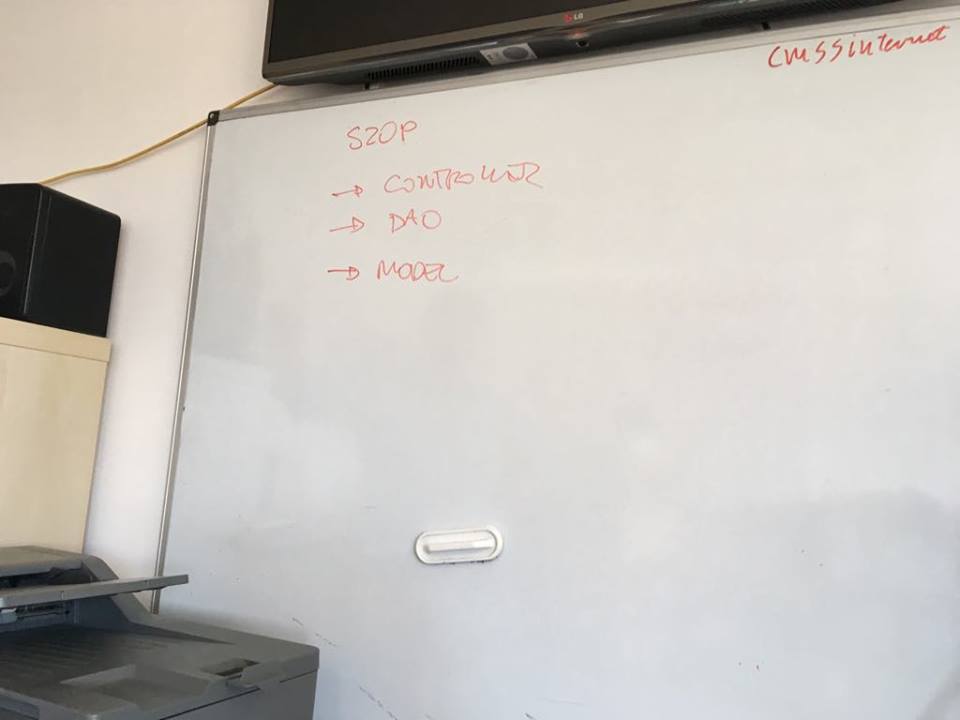 LG
cmssinternet
SZOP
→ CONTROLLER
→ DAO
→ MODEL